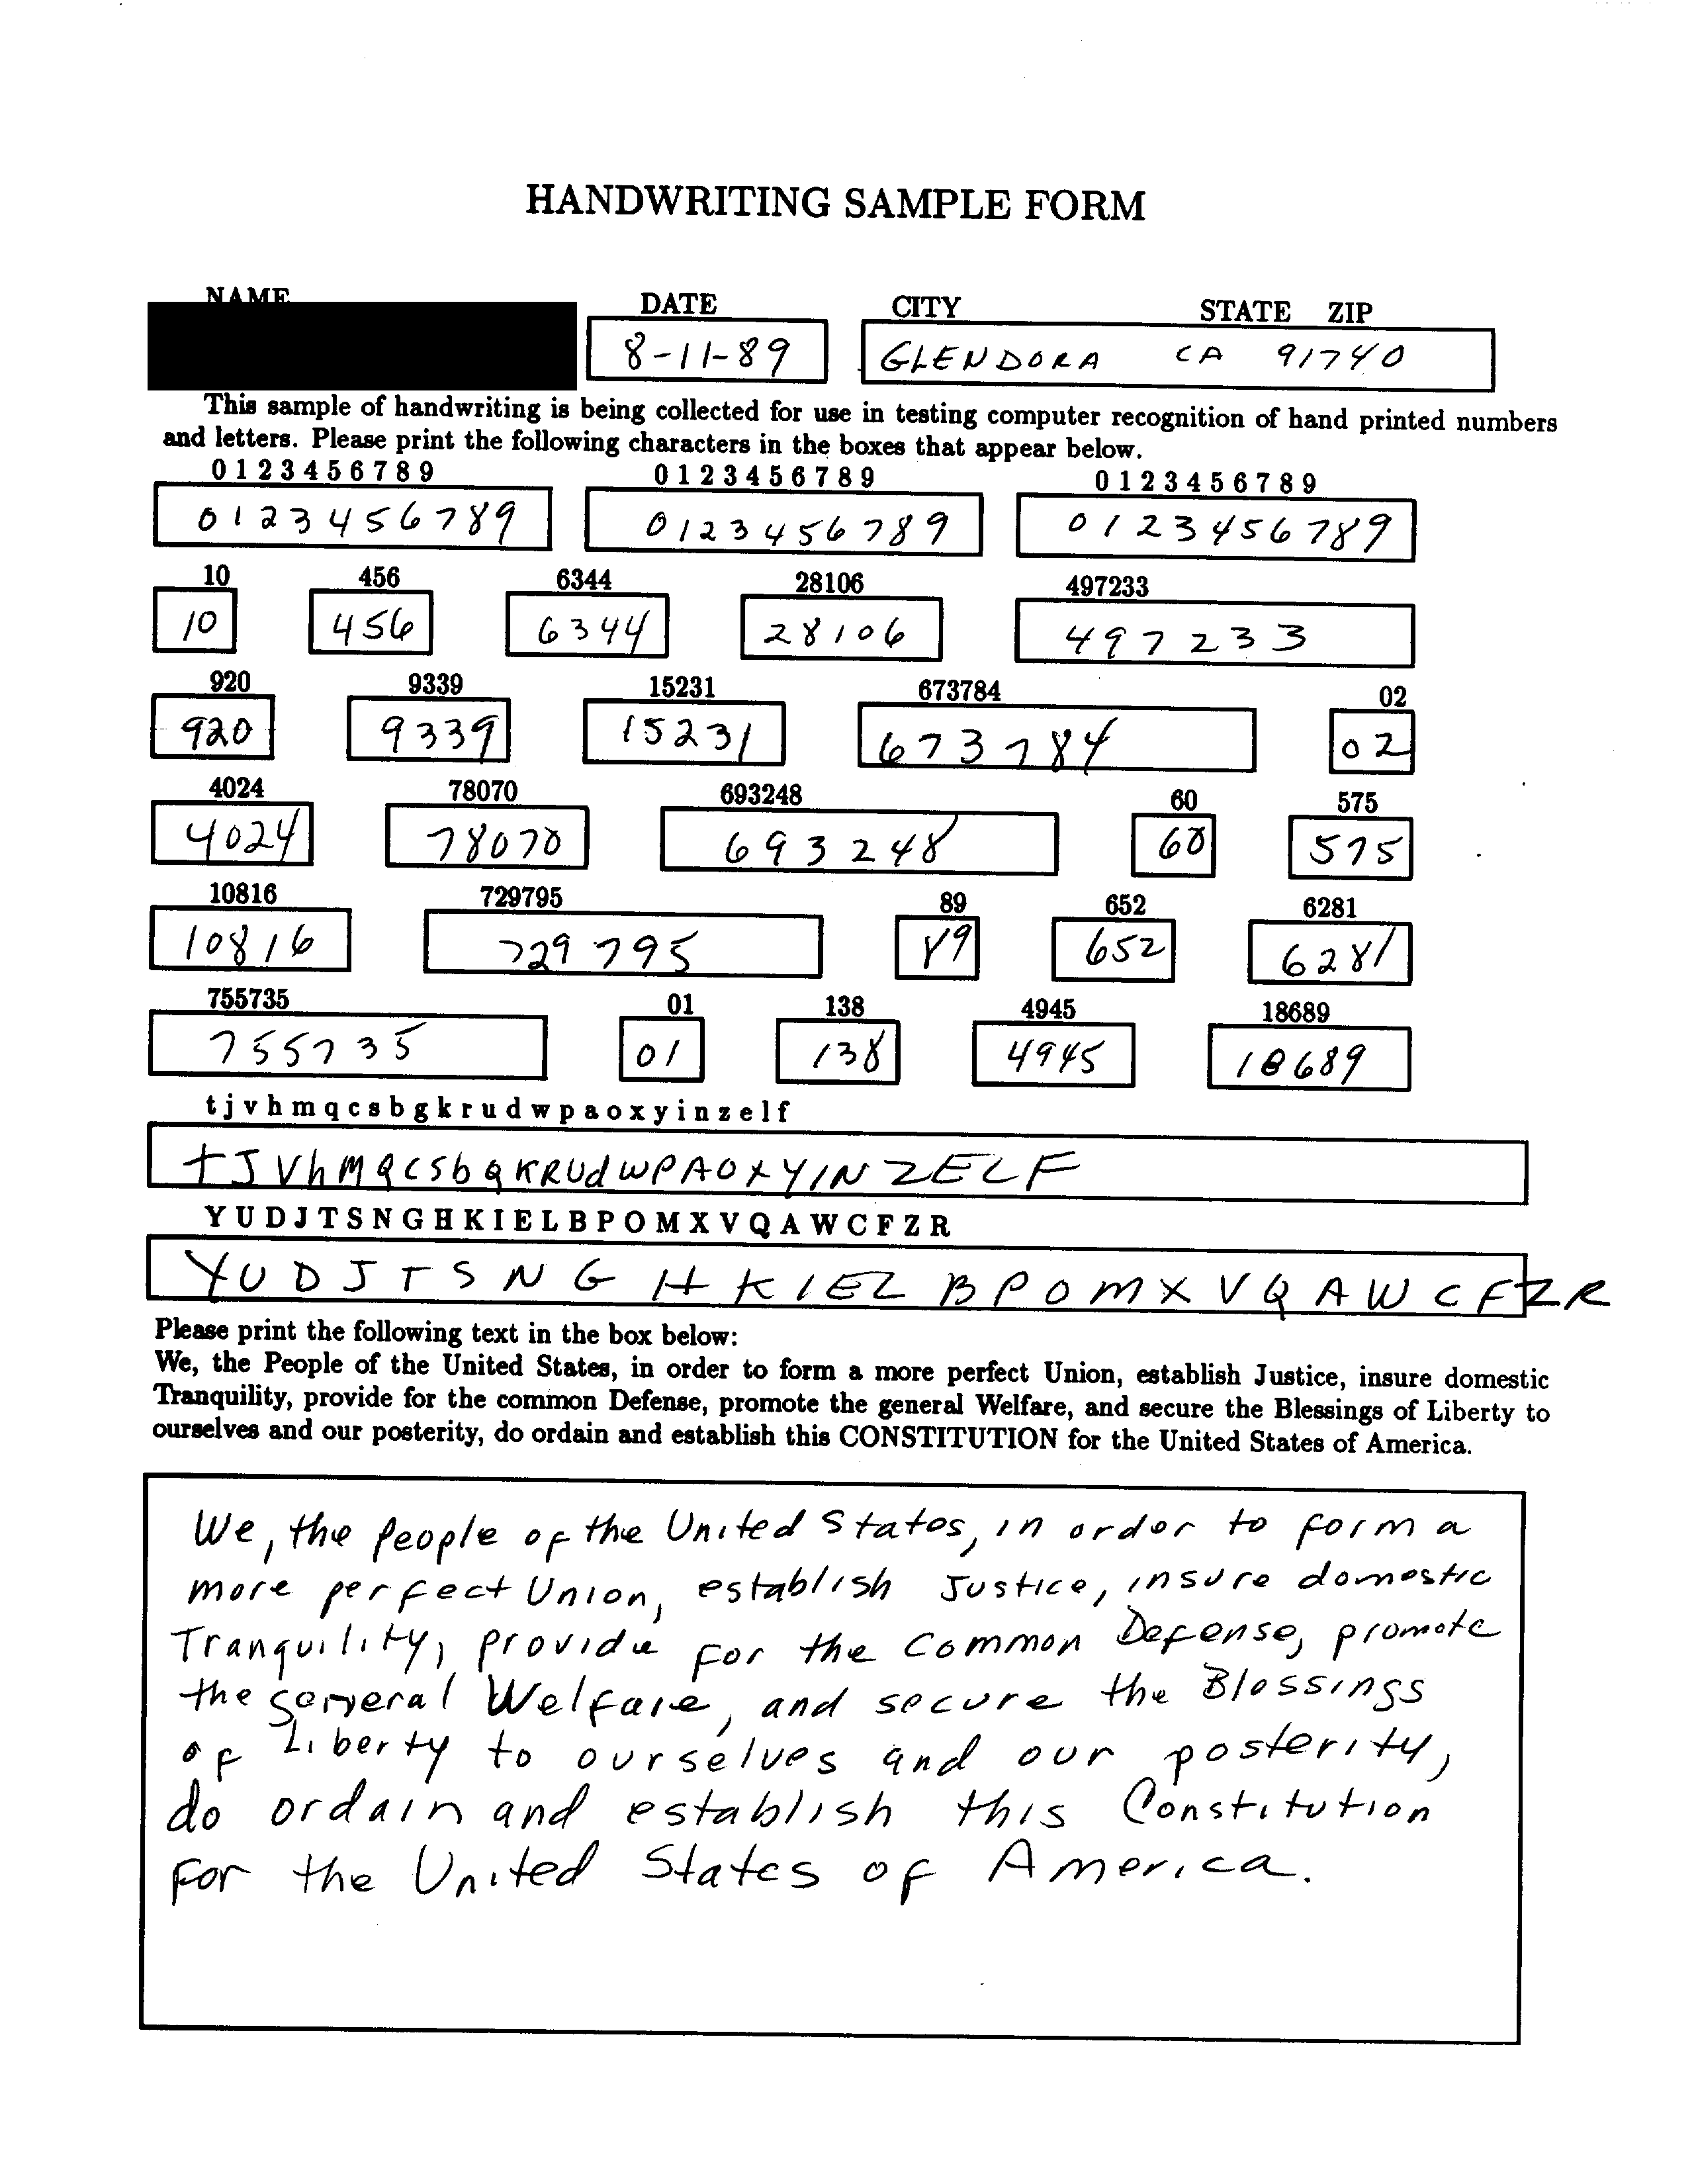 HANDWRITING SAMPLE FORM
NAME DATE CITY STATE ZIP
8-11-89 GLENDORA CA 91740
This sample of handwriting is being collected for use in testing computer recognition of hand printed numbers
and letters. Please print the following characters in the boxes that appear below.
0 1 2 3 4 5 6 7 8 9 0 1 2 3 4 5 6 7 8 9 0 1 2 3 4 5 6 7 8 9
0 1 2 3 4 5 6 7 8 9 0 1 2 3 4 5 6 7 8 9 0 1 2 3 4 5 6 7 8 9
10 456 6344 28106 497233
10 456 6344 28106 497233
920 9339 15231 673784 02
920 9339 15231 673784 02
4024 78070 693248 60 575
4024 78070 693248 60 575
10816 729795 89 652 6281
10816 729795 89 652 6281
755735 01 138 4945 18689
755735 01 138 4945 18689
t j v h m q c s b g k r u d w p a o x y i n z e l f
t J V h M Q C S b g K R U d W P A O X Y I N Z E L F
Y U D J T S N G H K I E L B P O M X V Q A W C F Z R
Y U D J T S N G H K I E L B P O M X V Q A W C F Z R
Please print the following text in the box below:
We, the People of the United States, in order to form a more perfect Union, establish Justice, insure domestic
Tranquility, provide for the common Defense, promote the general Welfare, and secure the Blessings of Liberty to
ourselves and our posterity, do ordain and establish this CONSTITUTION for the United States of America.
We, the People of the United States, in order to form a
more perfect Union, establish Justice, insure domestic
Tranquility, provide for the Common Defense, promote
the general Welfare, and secure the Blessings
of Liberty to ourselves and our posterity,
do ordain and establish this Constitution
for the United States of America.